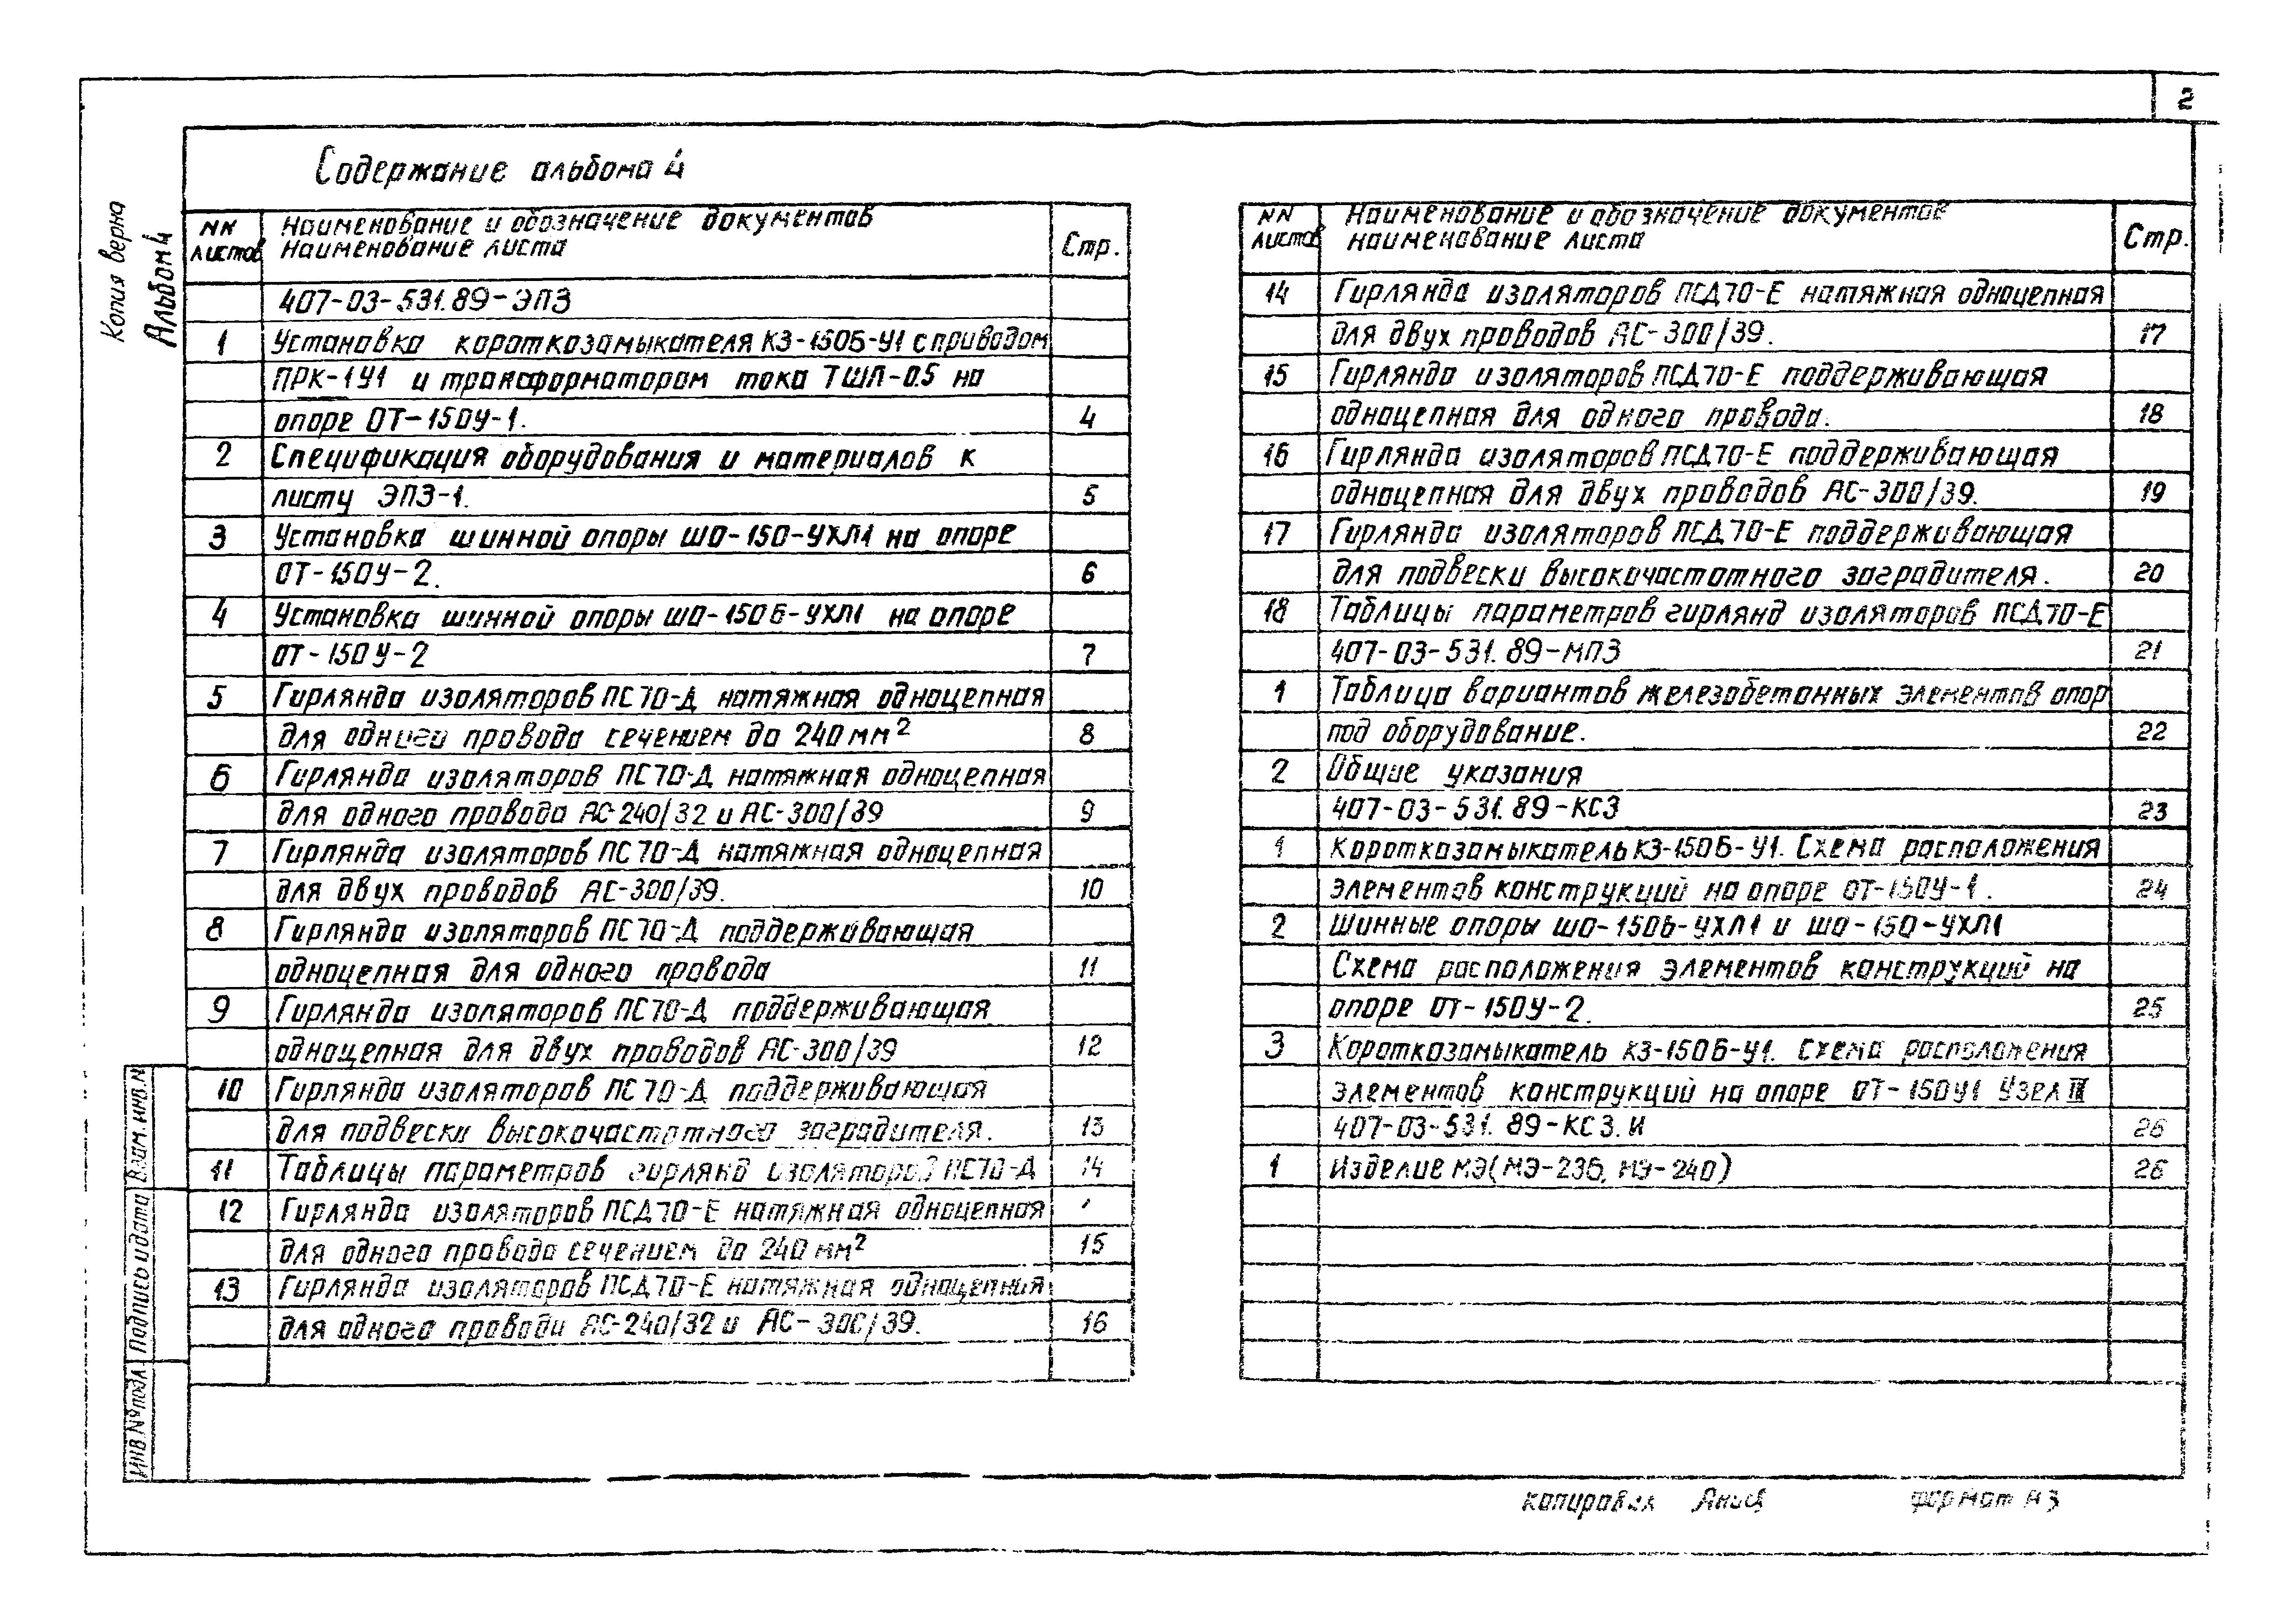 2
Копия верна
Альбом 4
Содержание альбома 4
NN листов
Наименование и обозначение документов
Наименование листа
Стр.
407-03-531.89-ЭПЗ
1 Установка короткозамыкателя КЗ-150Б-У1 с приводом
ПРК-1У1 и трансформатором тока ТШЛ-0.5 на
опоре ОТ-150У-1. 4
2 Спецификация оборудования и материалов к
листу ЭПЗ-1. 5
3 Установка шинной опоры ШО-150-УХЛ1 на опоре
ОТ-150У-2. 6
4 Установка шинной опоры ШО-150Б-УХЛ1 на опоре
ОТ-150У-2 7
5 Гирлянда изоляторов ПС70-Д натяжная одноцепная
для одного провода сечением до 240 мм² 8
6 Гирлянда изоляторов ПС70-Д натяжная одноцепная
для одного провода АС-240/32 и АС-300/39 9
7 Гирлянда изоляторов ПС70-Д натяжная одноцепная
для двух проводов АС-300/39. 10
8 Гирлянда изоляторов ПС70-Д поддерживающая
одноцепная для одного провода 11
9 Гирлянда изоляторов ПС70-Д поддерживающая
одноцепная для двух проводов АС-300/39 12
10 Гирлянда изоляторов ПС70-Д поддерживающая
для подвески высокочастотного заградителя. 13
11 Таблицы параметров гирлянд изоляторов ПС70-Д 14
12 Гирлянда изоляторов ПСД70-Е натяжная одноцепная
для одного провода сечением до 240 мм² 15
13 Гирлянда изоляторов ПСД70-Е натяжная одноцепная
для одного провода АС-240/32 и АС-300/39. 16
NN листов
Наименование и обозначение документов
наименование листа
Стр.
14 Гирлянда изоляторов ПСД70-Е натяжная одноцепная
для двух проводов АС-300/39. 17
15 Гирлянда изоляторов ПСД70-Е поддерживающая
одноцепная для одного провода. 18
16 Гирлянда изоляторов ПСД70-Е поддерживающая
одноцепная для двух проводов АС-300/39. 19
17 Гирлянда изоляторов ПСД70-Е поддерживающая
для подвески высокочастотного заградителя. 20
18 Таблицы параметров гирлянд изоляторов ПСД70-Е
407-03-531.89-МПЗ 21
1 Таблица вариантов железобетонных элементов опор
под оборудование. 22
2 Общие указания
407-03-531.89-КСЗ 23
1 Короткозамыкатель КЗ-150Б-У1. Схема расположения
элементов конструкций на опоре ОТ-150У-1. 24
2 Шинные опоры ШО-150Б-УХЛ1 и ШО-150-УХЛ1
Схема расположения элементов конструкций на
опоре ОТ-150У-2. 25
3 Короткозамыкатель КЗ-150Б-У1. Схема расположения
элементов конструкций на опоре ОТ-150У1 Узел III
407-03-531.89-КСЗ.И 26
1 Изделие МЭ (МЭ-236, МЭ-240) 26
Взам. инв.N
Подпись и дата
Инв.№ подл.
копировал
формат А3